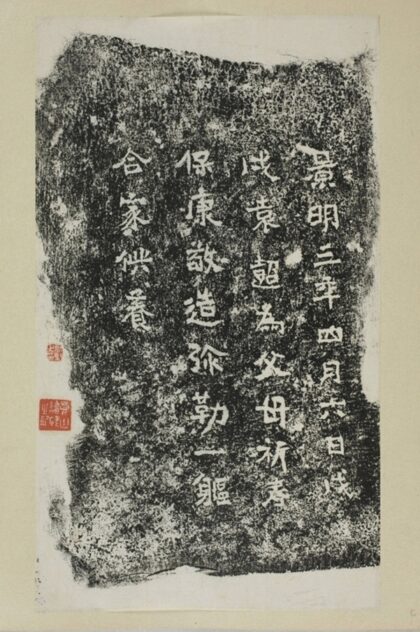 景明三年四月六日
袁超為父母祈壽
保康敬造弥勒一軀
合家供養